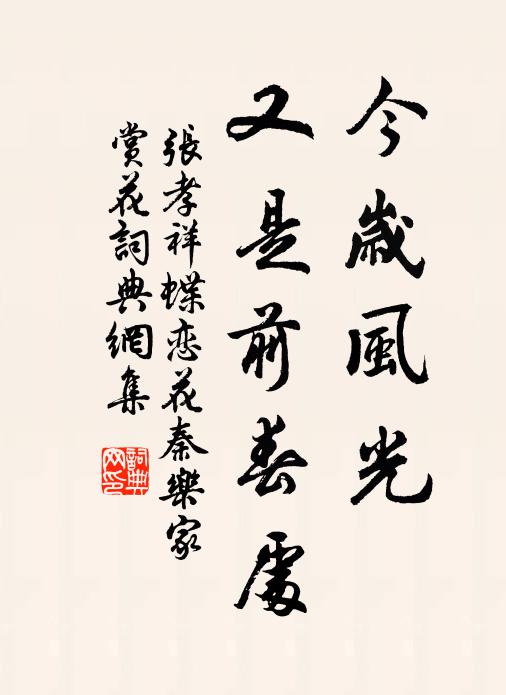 今歲風光
又是前春處
張孝祥蝶恋花秦樂家
賞花詞典網集
詞典網印